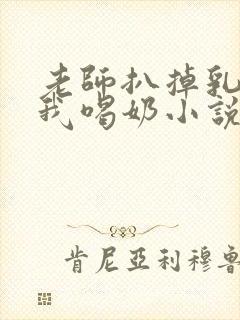 老師扒掉乳
我喝奶小說
肯尼亞利穆魯